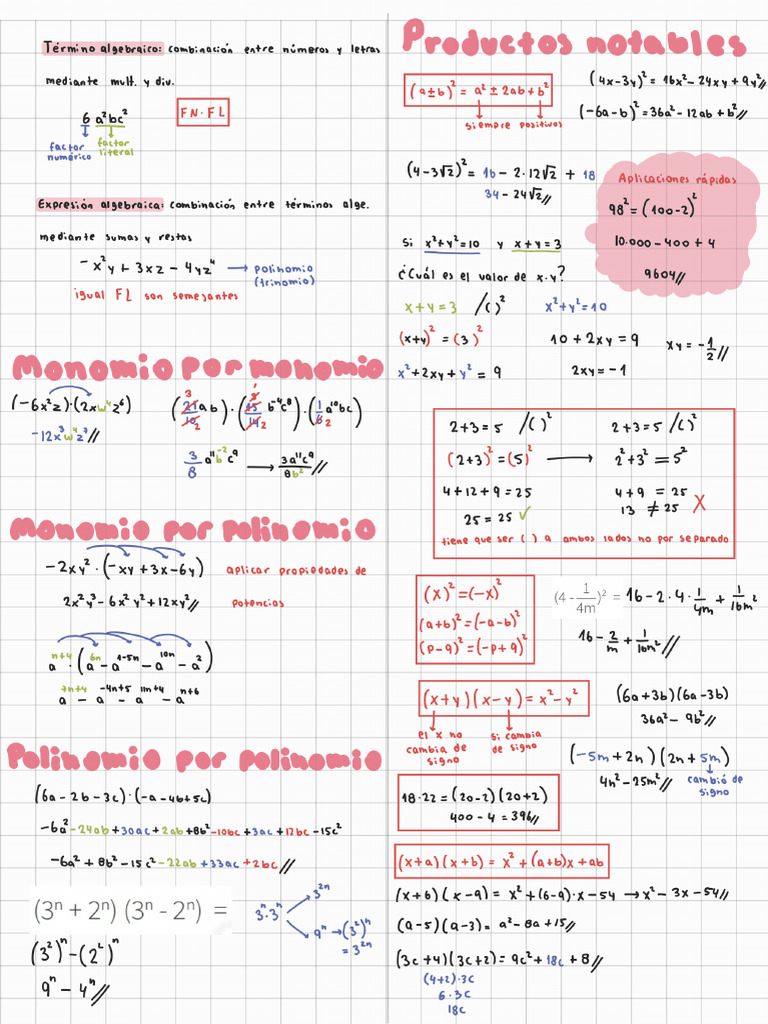 Término algebraico: combinación entre números y letras
mediante mult. y div.
6 a²bc²
FN·FL
factor numérico
factor literal
Expresión algebraica: combinación entre términos alge.
mediante sumas y restas
-x²y + 3xz - 4yz⁴ → polinomio (trinomio)
igual FL son semejantes
Monomio por monomio
(-6x²z)·(2xw⁴z⁶)
-12x³w⁴z⁷//
(21/10 ab)·(15/14 b⁻⁴c⁸)·(1/6 a¹⁰bc)
3/8 a¹¹b⁻²c⁹ → 3a¹¹c⁹/8b²//
Monomio por polinomio
-2xy²·(-xy + 3x - 6y)
aplicar propiedades de
potencias
2x²y³ - 6x²y² + 12xy³//
aⁿ⁺⁴·(a⁶ⁿ - a¹⁻⁵ⁿ - a¹⁰ⁿ - a²)
a⁷ⁿ⁺⁴ - a⁻⁴ⁿ⁺⁵ - a¹¹ⁿ⁺⁴ - aⁿ⁺⁶
Polinomio por polinomio
(6a - 2b - 3c)·(-a - 4b + 5c)
-6a² - 24ab + 30ac + 2ab + 8b² - 10bc + 3ac + 12bc - 15c²
-6a² + 8b² - 15c² - 22ab + 33ac + 2bc//
(3ⁿ + 2ⁿ) (3ⁿ - 2ⁿ) =
3ⁿ·3ⁿ
3²ⁿ
9ⁿ → (3²)ⁿ
= 3²ⁿ
(3²)ⁿ - (2²)ⁿ
9ⁿ - 4ⁿ//
Productos notables
(a±b)² = a² ± 2ab + b²
siempre positivos
(4x-3y)² = 16x² - 24xy + 9y²//
(-6a-b)² = 36a² - 12ab + b²//
(4-3√2)² = 16 - 2·12√2 + 18
34 - 24√2//
Aplicaciones rápidas
98² = (100-2)²
10.000 - 400 + 4
9604//
Si x²+y²=10 y x+y=3
¿Cuál es el valor de x·y?
x+y=3 /( )²
x²+y²=10
(x+y)² = (3)²
10 + 2xy = 9
xy = -1/2//
x² + 2xy + y² = 9
2xy = -1
2+3=5 /( )²
2+3=5 /( )²
(2+3)² = (5)² →
2²+3² = 5²
4+12+9 = 25
4+9 = 25
25 = 25 ✓
13 ≠ 25 X
tiene que ser ( ) a ambos lados no por separado
(x)² = (-x)²
(a+b)² = (-a-b)²
(p-q)² = (-p+q)²
(4 - 1/4m)² = 16 - 2·4·1/4m + 1/16m²
16 - 2/m + 1/16m²//
(x+y)(x-y) = x² - y²
el x no cambia de signo
si cambia de signo
(6a+3b)(6a-3b)
36a² - 9b²//
(-5m+2n)(2n+5m)
4n² - 25m²//
cambió de signo
18·22 = (20-2)(20+2)
400 - 4 = 396//
(x+a)(x+b) = x² + (a+b)x + ab
(x+6)(x-9) = x² + (6-9)·x - 54 → x² - 3x - 54//
(a-5)(a-3) = a² - 8a + 15//
(3c+4)(3c+2) = 9c² + 18c + 8//
(4+2)·3c
6·3c
18c